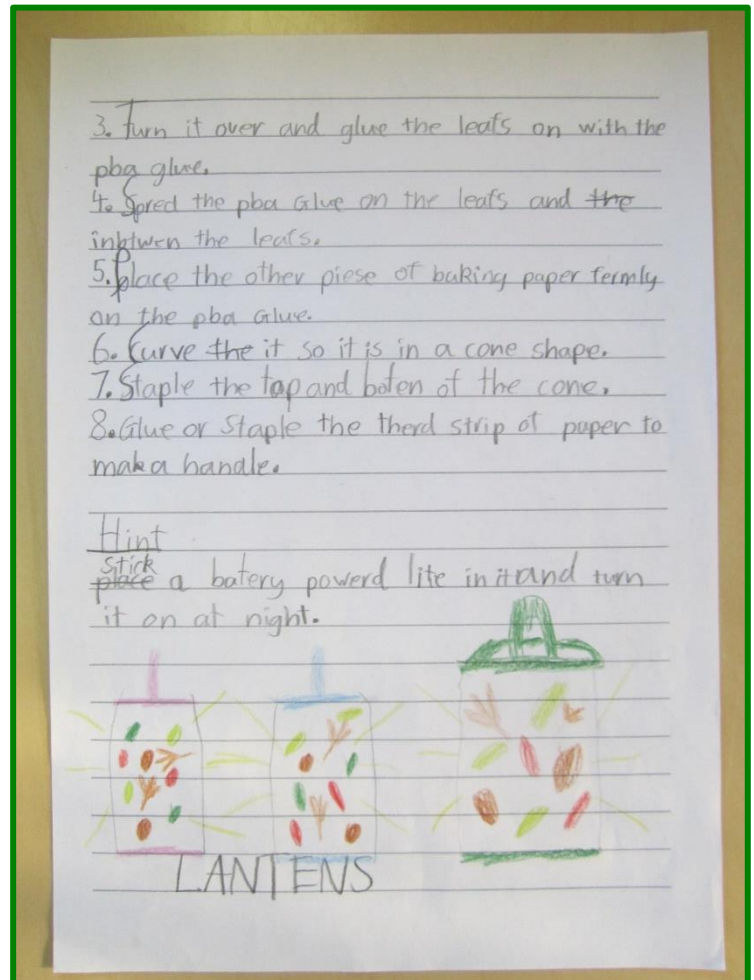 3. Turn it over and glue the leafs on with the
pba glue.
4. Spred the pba Glue on the leafs and the
inbtwen the leafs.
5. place the other piese of baking paper fermly
on the pba Glue.
6. Curve the it so it is in a cone shape.
7. Staple the top and boten of the cone.
8. Glue or Staple the therd strip of paper to
make a handle.
Hint
stick
place a batery powerd lite in it and turn
it on at night.
LANTENS